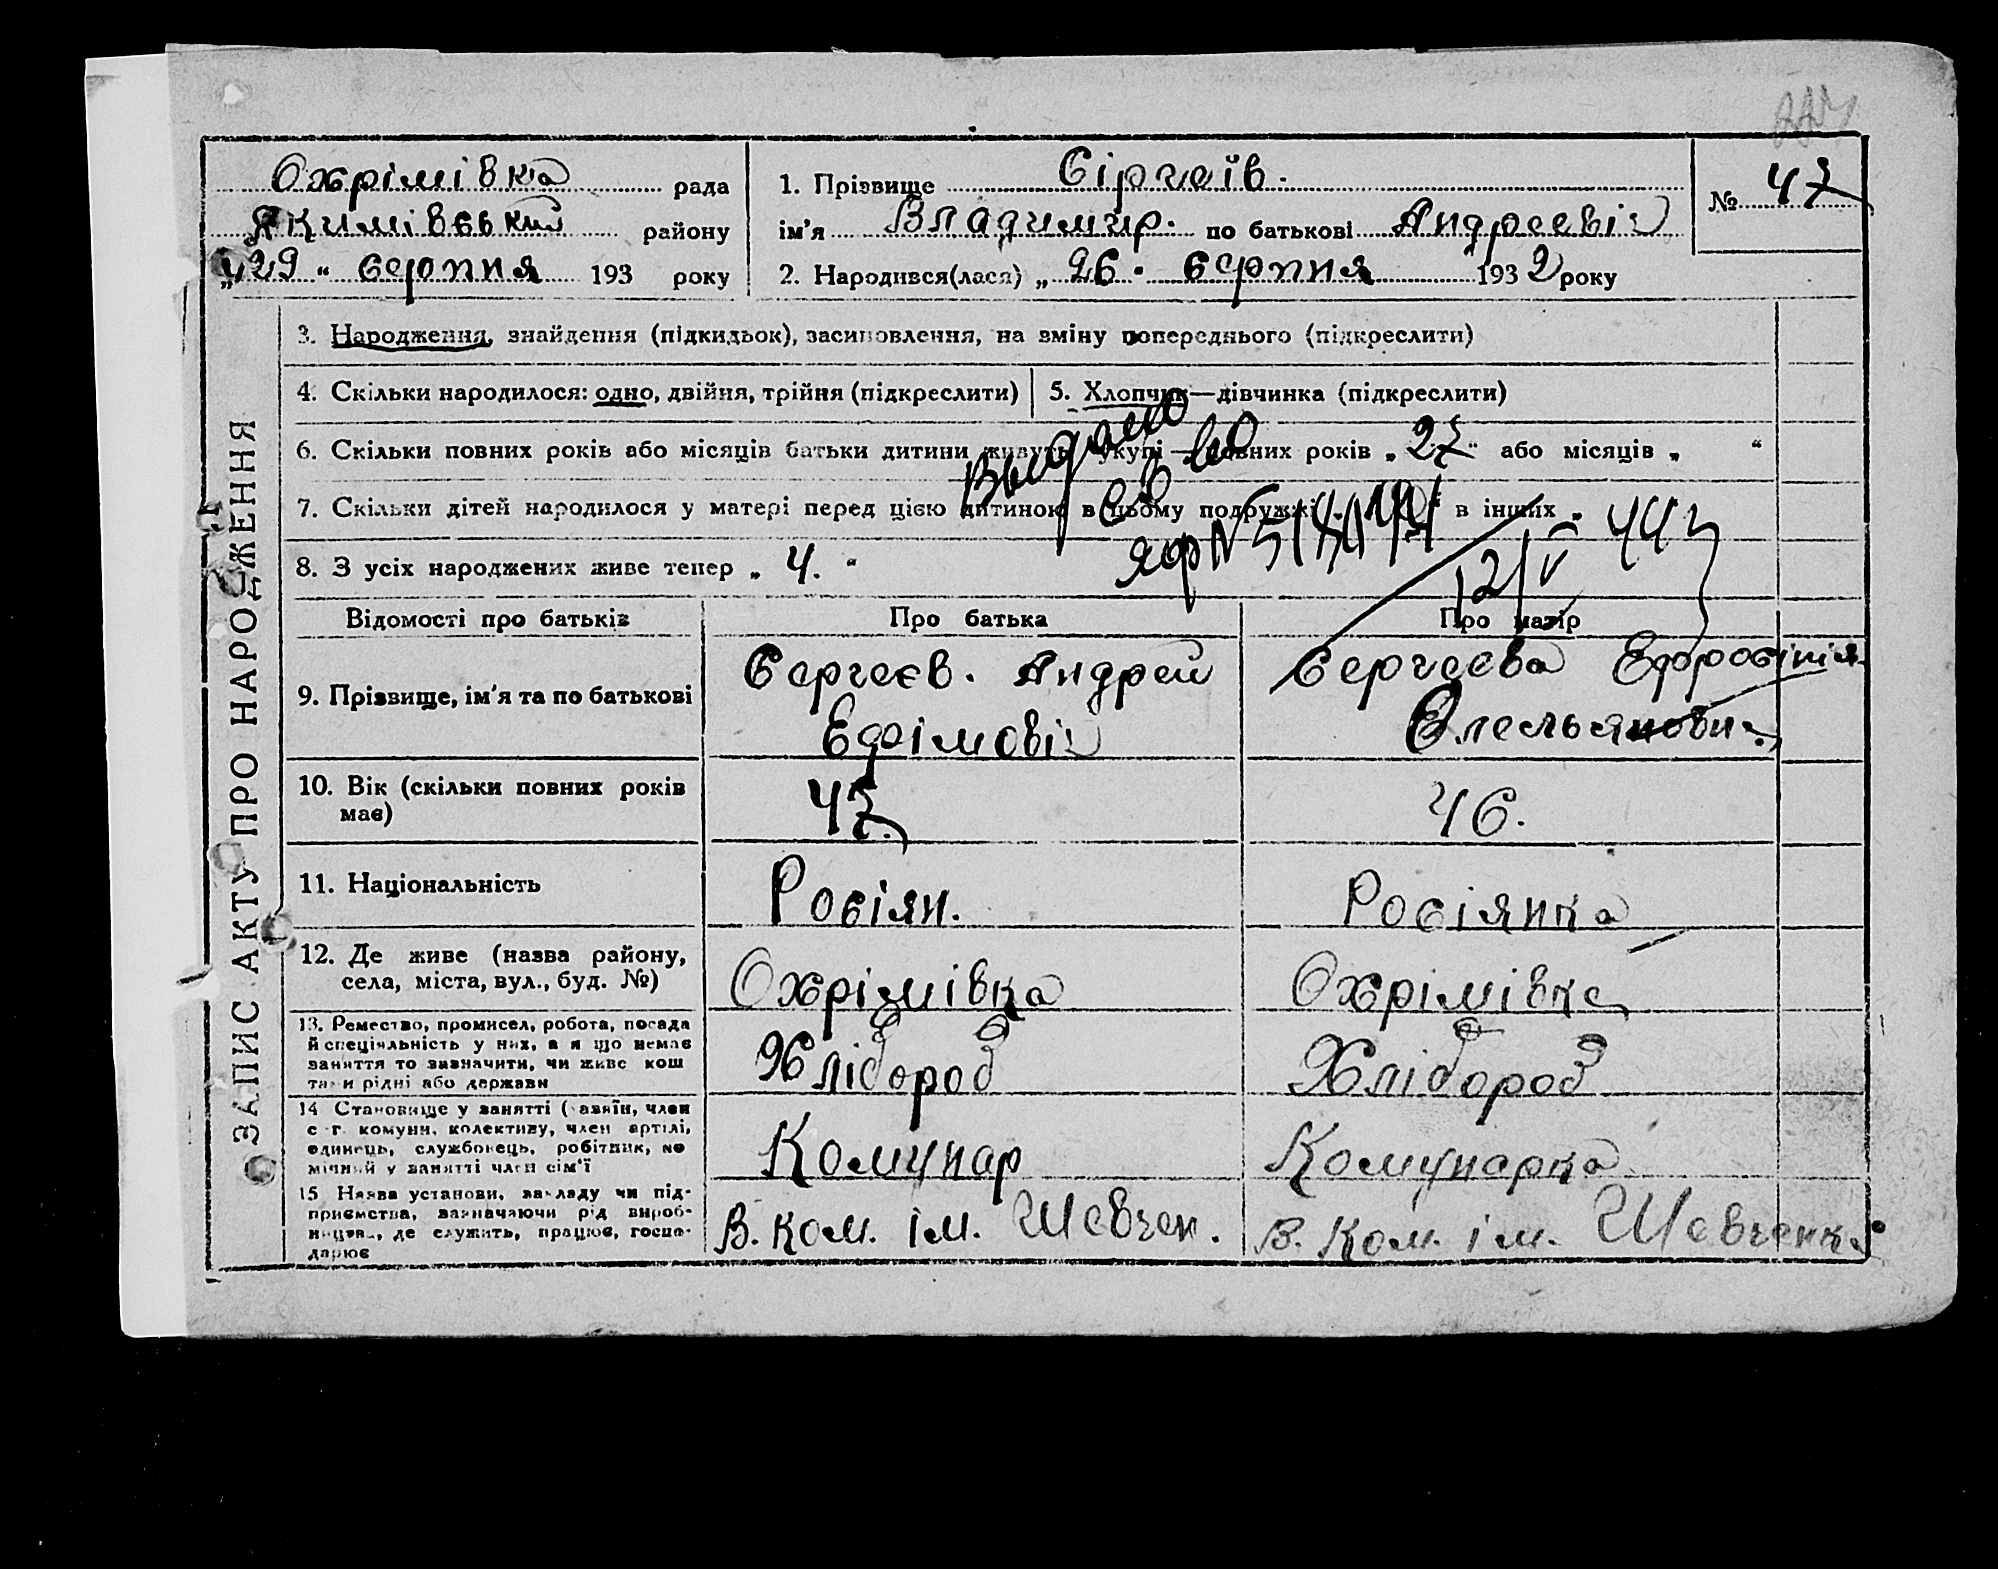 Охрімівка рада
Якимівський району
„29“ серпня 193 року
1. Прізвище Сіргеїв.
ім’я Владимир. по батькові Андреевіч
2. Народився(лася) „26. серпня 1932 року
№ 47
ЗАПИС АКТУ ПРО НАРОДЖЕННЯ
3. Народження, знайдення (підкидьок), засиновлення, на зміну попереднього (підкреслити)
4. Скільки народилося: одно, двійня, трійня (підкреслити)
5. Хлопчик—дівчинка (підкреслити)
6. Скільки повних років або місяців батьки дитини живуть укупі — повних років „27“ або місяців „ “
7. Скільки дітей народилося у матері перед цією дитиною в цьому подружжі в інших „
Выдано
св во
12/V 44
8. З усіх народжених живе тепер „4.“
Відомості про батьків
Про батька
Про матір
9. Прізвище, ім’я та по батькові
Сергеєв. Андрей
Ефімовіч
Сергеева Ефросінія
Олельянови.
10. Вік (скільки повних років
має)
47.
46.
11. Національність
Росіян.
Росіянка
12. Де живе (назва району,
села, міста, вул., буд. №)
Охрімівка
Охрімівка
13. Ремество, промисел, робота, посада
й спеціяльність у них, а я що немає
заняття то зазначити, чи живе кош
тами рідні або держави
Хлібороб
Хлібороб
14 Становище у занятті (хазяїн, член
с г. комуни, колективу, член артілі,
одинець, службовець, робітник, по
мічний у занятті член сім’ї
Комунар
Комунарка
15 Назва установи, закладу чи під-
приємства, зазначаючи рід вироб-
ництва, де служить, працює, госпо-
дарює
В. ком. ім. Шевчен.
В. Ком. ім. Шевченка